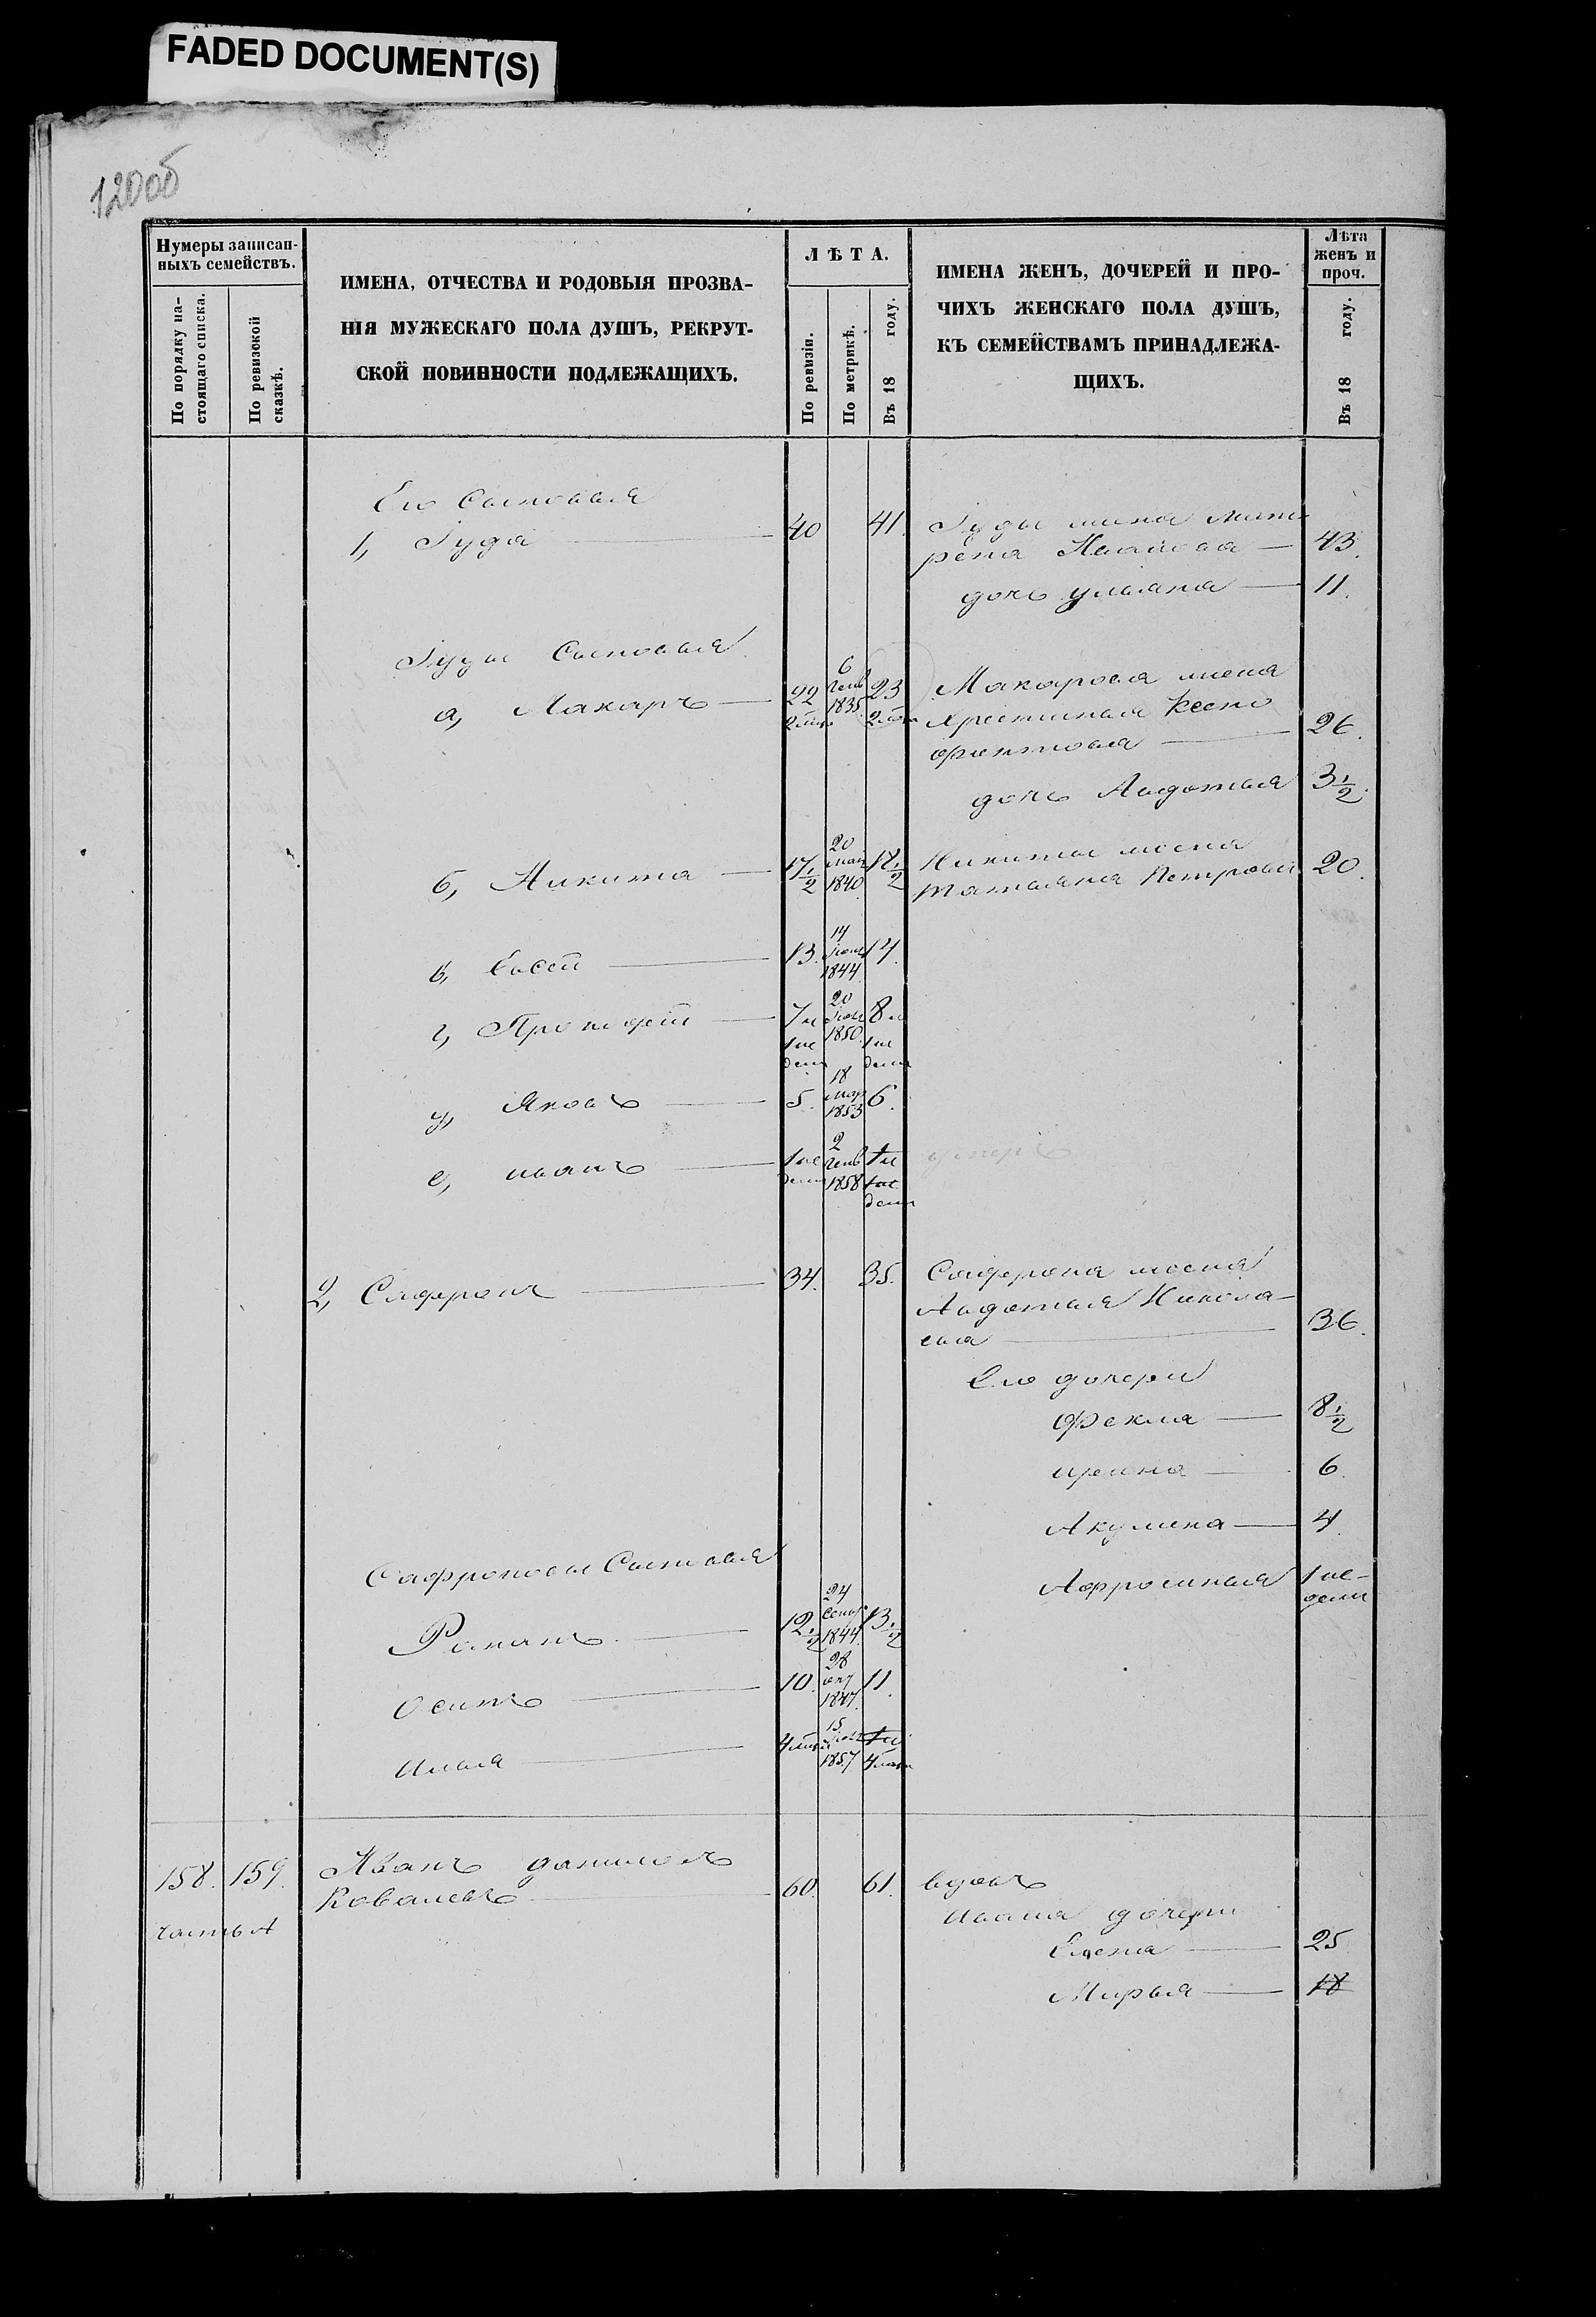 FADED DOCUMENT(S)
120об
Нумеры записан-
ныхъ семействъ.
По порядку на-
стоящаго списка.
По ревизской
сказкѣ.
ИМЕНА, ОТЧЕСТВА И РОДОВЫЯ ПРОЗВА-
НІЯ МУЖЕСКАГО ПОЛА ДУШЪ, РЕКРУТ-
СКОЙ ПОВИННОСТИ ПОДЛЕЖАЩИХЪ.
ЛѢТА.
По ревизіи.
По метрикѣ.
Въ 18 году.
ИМЕНА ЖЕНЪ, ДОЧЕРЕЙ И ПРО-
ЧИХЪ ЖЕНСКАГО ПОЛА ДУШЪ,
КЪ СЕМЕЙСТВАМЪ ПРИНАДЛЕЖА-
ЩИХЪ.
Лѣта
женъ и
проч.
Въ 18 году.
Его Сыновья
1, Іуда 40 41.
Іуды жена
43.
дочь Ульяна 11.
Іуды Сыновья
а, Макаръ 22 6 Генв 1835 23
Макарова жена
Христинья Ксено
фонтова 26.
дочь Авдотья 3½.
б, Никита 17½ 20 мая 1840. 18½
Никиты жена
Татьяна Петрова 20.
в, Евсей 13. 14 1844. 14.
г, Прокофій 7 20 1850. 8
1 не
дели
1 не
дели
д, Яковъ 5. 18 мар 1853 6.
е, иванъ 1 не
дели
2 Генв 1858
1 не
дели
умеръ
2, Сафронъ 34. 35.
Сафрона жена
Авдотья Никола-
ева 36.
Его дочери
Фекла 8½
ирина 6.
Акулина 4.
Афросинья 1 не-
дели
Сафроновы Сыновья
Романъ 12½ 24 Сент. 1844. 13½
Осипъ 10. 28 окт 1847. 11.
Илья 15 1857
158. 159. Иванъ даниловъ
Ковалевъ 60. 61.
часть А
вдовъ
Ивана дочери
Елена 25
Марья 18